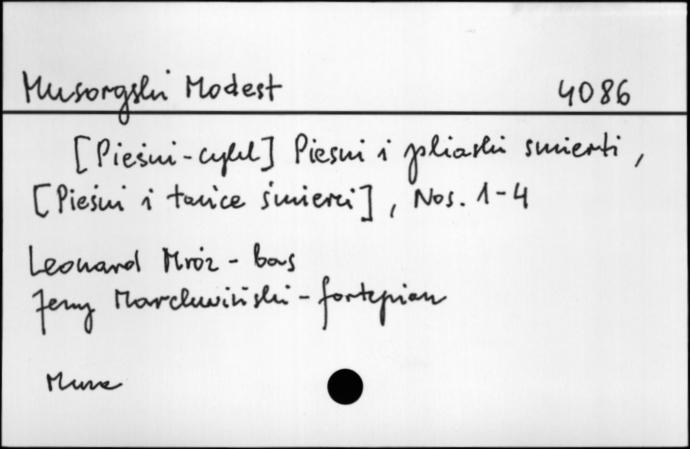 Musorgski Modest 4086
[Pieśni-cykl] Piesni i pliaski smierti,
[Pieśni i tańce śmierci], Nos. 1-4
Leonard Mróz - bas
Jerzy Marchwiński - fortepian
Muza